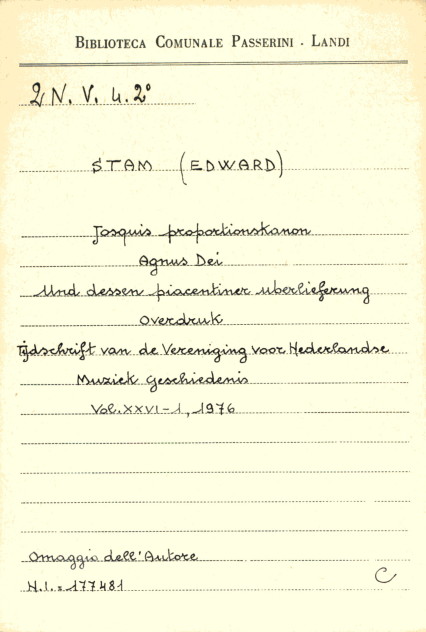 BIBLIOTECA COMUNALE PASSERINI - LANDI
2 N. V. 4. 2°
STAM (EDWARD)
Josquis proportionskanon
Agnus Dei
Und dessen piacentiner uberlieferung
Overdruk
Tijdschrift van de Vereniging voor Nederlandse
Muziek Geschiedenis
Vol. XXVI-1, 1976
Omaggio dell'Autore
N.I. = 177481
C